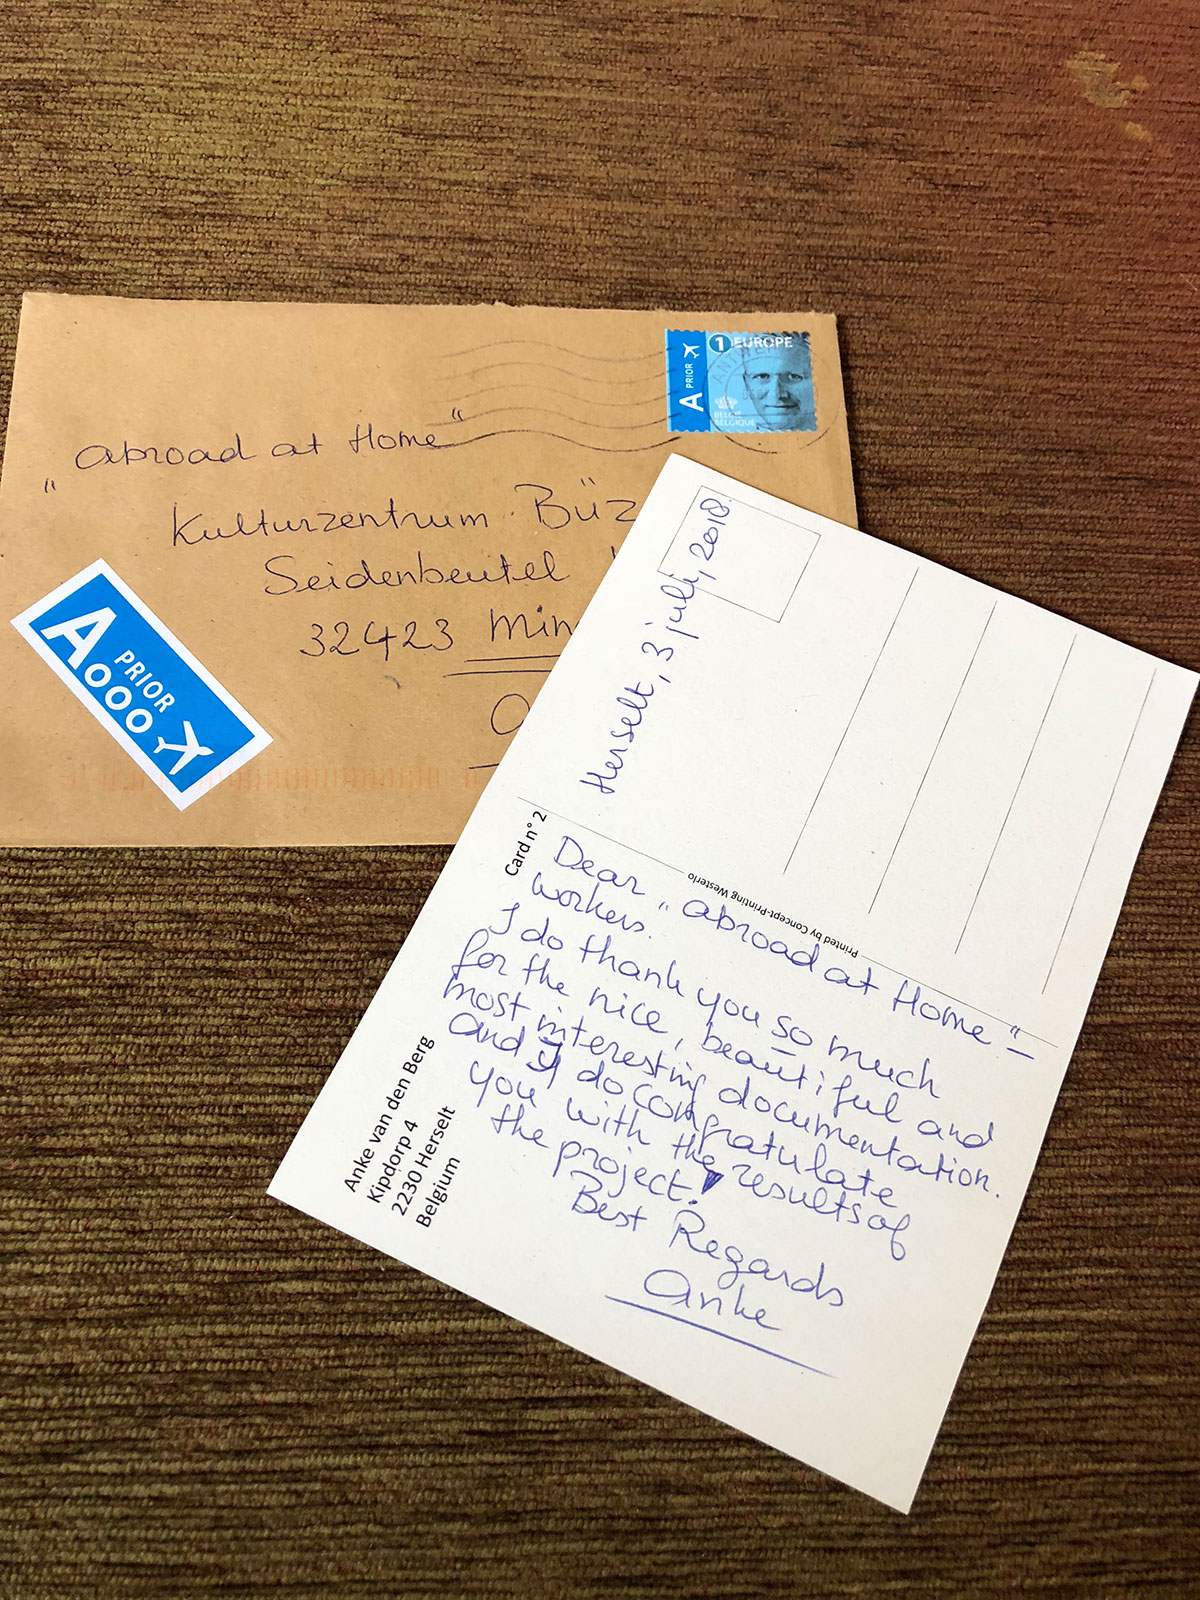 "abroad at Home"
Kulturzentrum Büz
Seidenbeutel
32423 Min
A PRIOR
1 EUROPE
BELGIË
BELGIQUE
A PRIOR
Herselt, 3 juli, 2018.
Card n° 2
Printed by Concept-Printing Westerlo
Dear "abroad at Home"-
workers.
I do thank you so much
for the nice, beautiful and
most interesting documentation.
and I do congratulate
you with the results of
the project!
Best Regards
Anke
Anke van den Berg
Kipdorp 4
2230 Herselt
Belgium